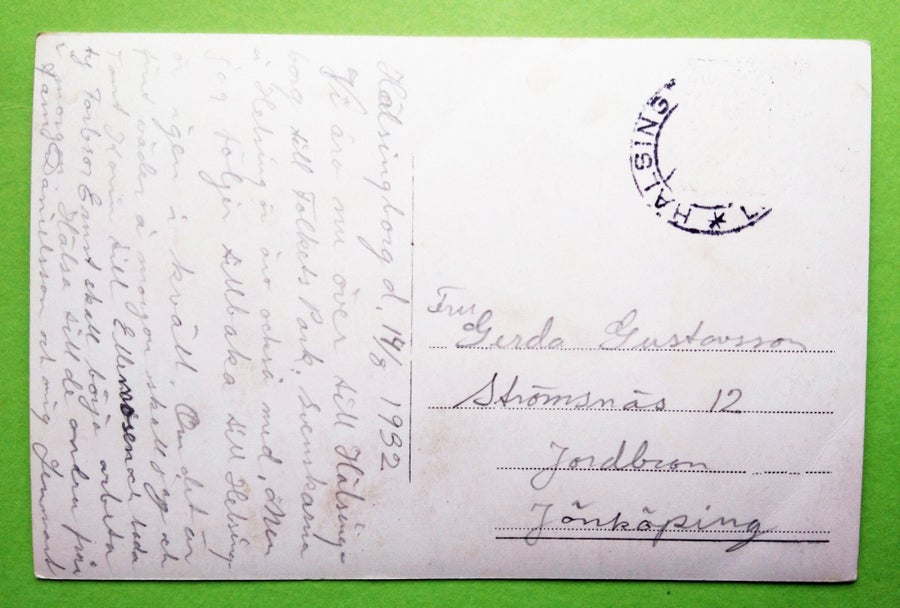 Hälsingborg d. 14/8 1932
Vi äro nu över till Hälsing-
borg till Folkets Park. Svenskarna
i Helsingör äro också med. Men
jag följer tillbaka till Helsing-
ör igen i kväll. Om det är
fint väder i morgon skall jag och
Tant Karin till
ty Farbror Ernst skall börja arbeta
i morgon. Hälsa till de andra från
Fam. Danielsson och mig Lennart
HÄLSING
Fru
Gerda Gustavsson
Strömsnäs 12
Jordbron
Jönköping